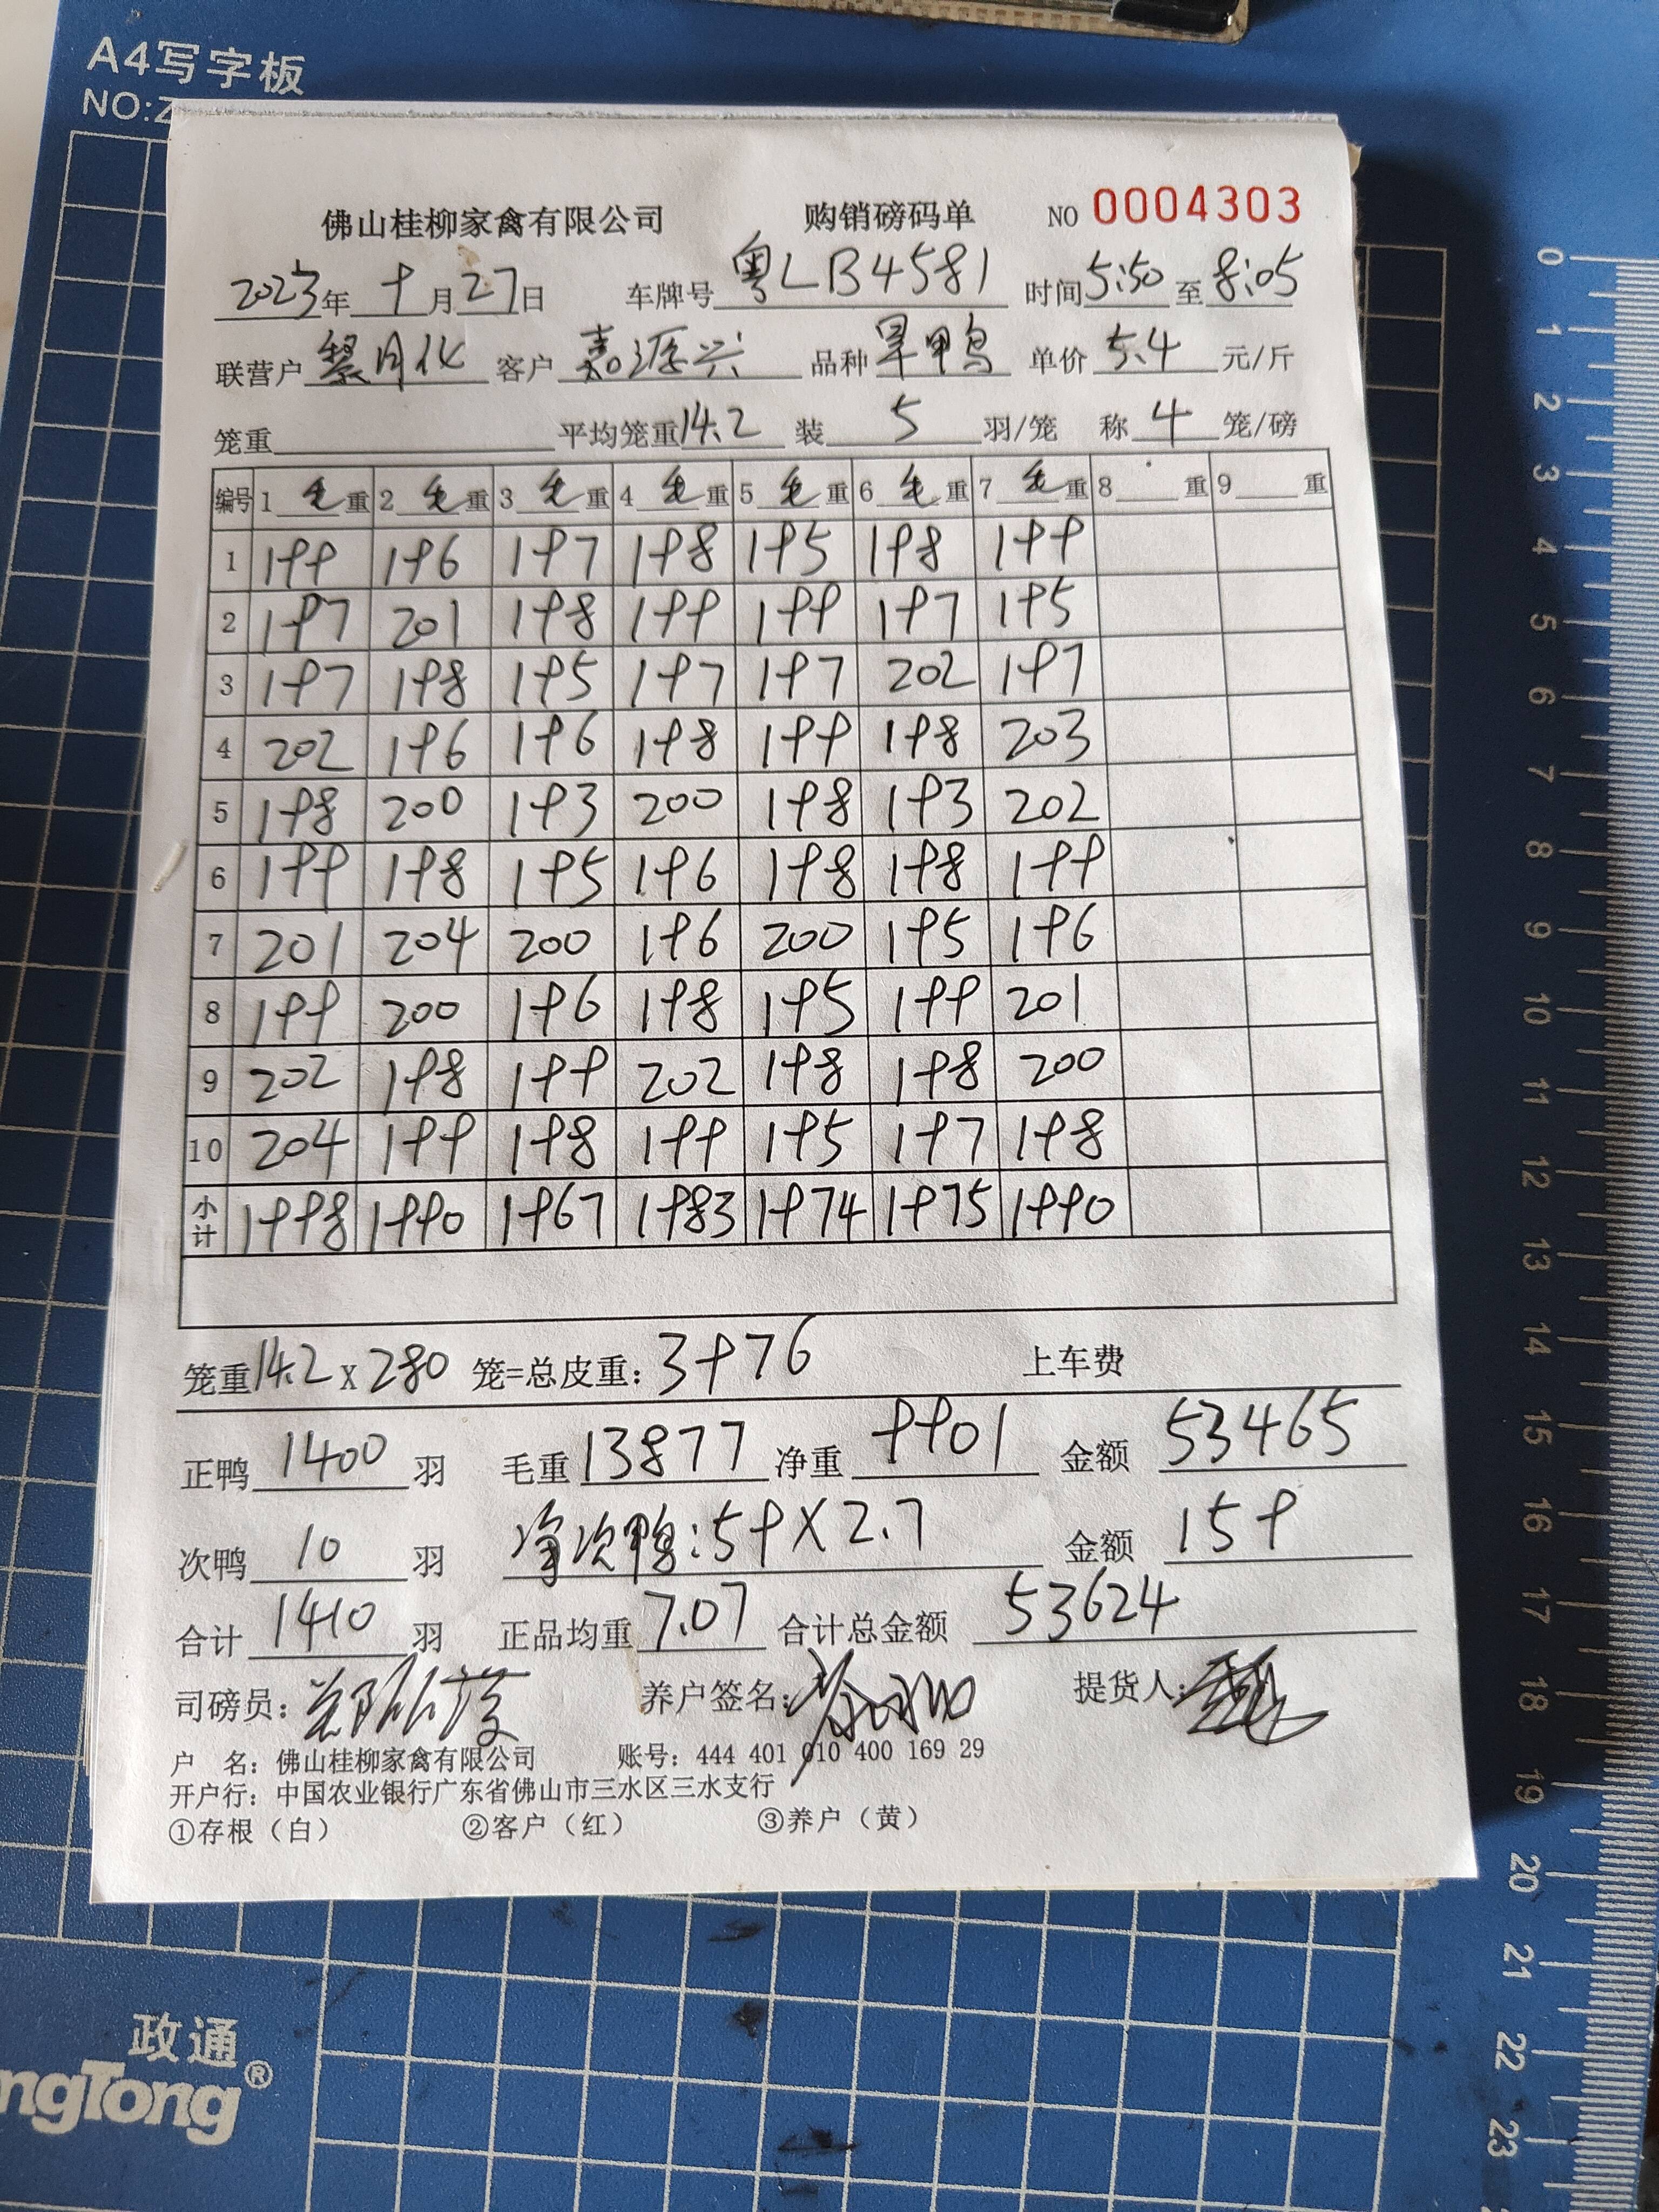 A4写字板
NO:Z
佛山桂柳家禽有限公司 购销磅码单 NO 0004303
2023年 9 月 27 日 车牌号 粤LB4581 时间 5:50 至 8:05
联营户 黎月化 客户 嘉源兴 品种 旱鸭 单价 5.4 元/斤
笼重 平均笼重 14.2 装 5 羽/笼 称 4 笼/磅
编号 1 毛 重 2 毛 重 3 毛 重 4 毛 重 5 毛 重 6 毛 重 7 毛 重 8 重 9 重
1 199 196 197 198 195 198 199
2 197 201 198 199 199 197 195
3 197 198 195 197 197 202 197
4 202 196 196 198 199 198 203
5 198 200 193 200 198 193 202
6 199 198 195 196 198 198 199
7 201 204 200 196 200 195 196
8 199 200 196 198 195 199 201
9 202 198 199 202 198 198 200
10 204 199 198 199 195 197 198
小计 1998 1990 1967 1983 1974 1975 1990
笼重 14.2 X 280 笼=总皮重: 3976 上车费
正鸭 1400 羽 毛重 13877 净重 9901 金额 53465
次鸭 10 羽 次鸭:59X2.7 金额 159
合计 1410 羽 正品均重 7.07 合计总金额 53624
司磅员: 养户签名: 提货人:
户 名: 佛山桂柳家禽有限公司 账号: 444 401 010 400 169 29
开户行: 中国农业银行广东省佛山市三水区三水支行
①存根（白） ②客户（红） ③养户（黄）
政通
ngTong®
0
1
2
3
4
5
6
7
8
9
10
11
12
13
14
15
16
17
18
19
20
21
22
23